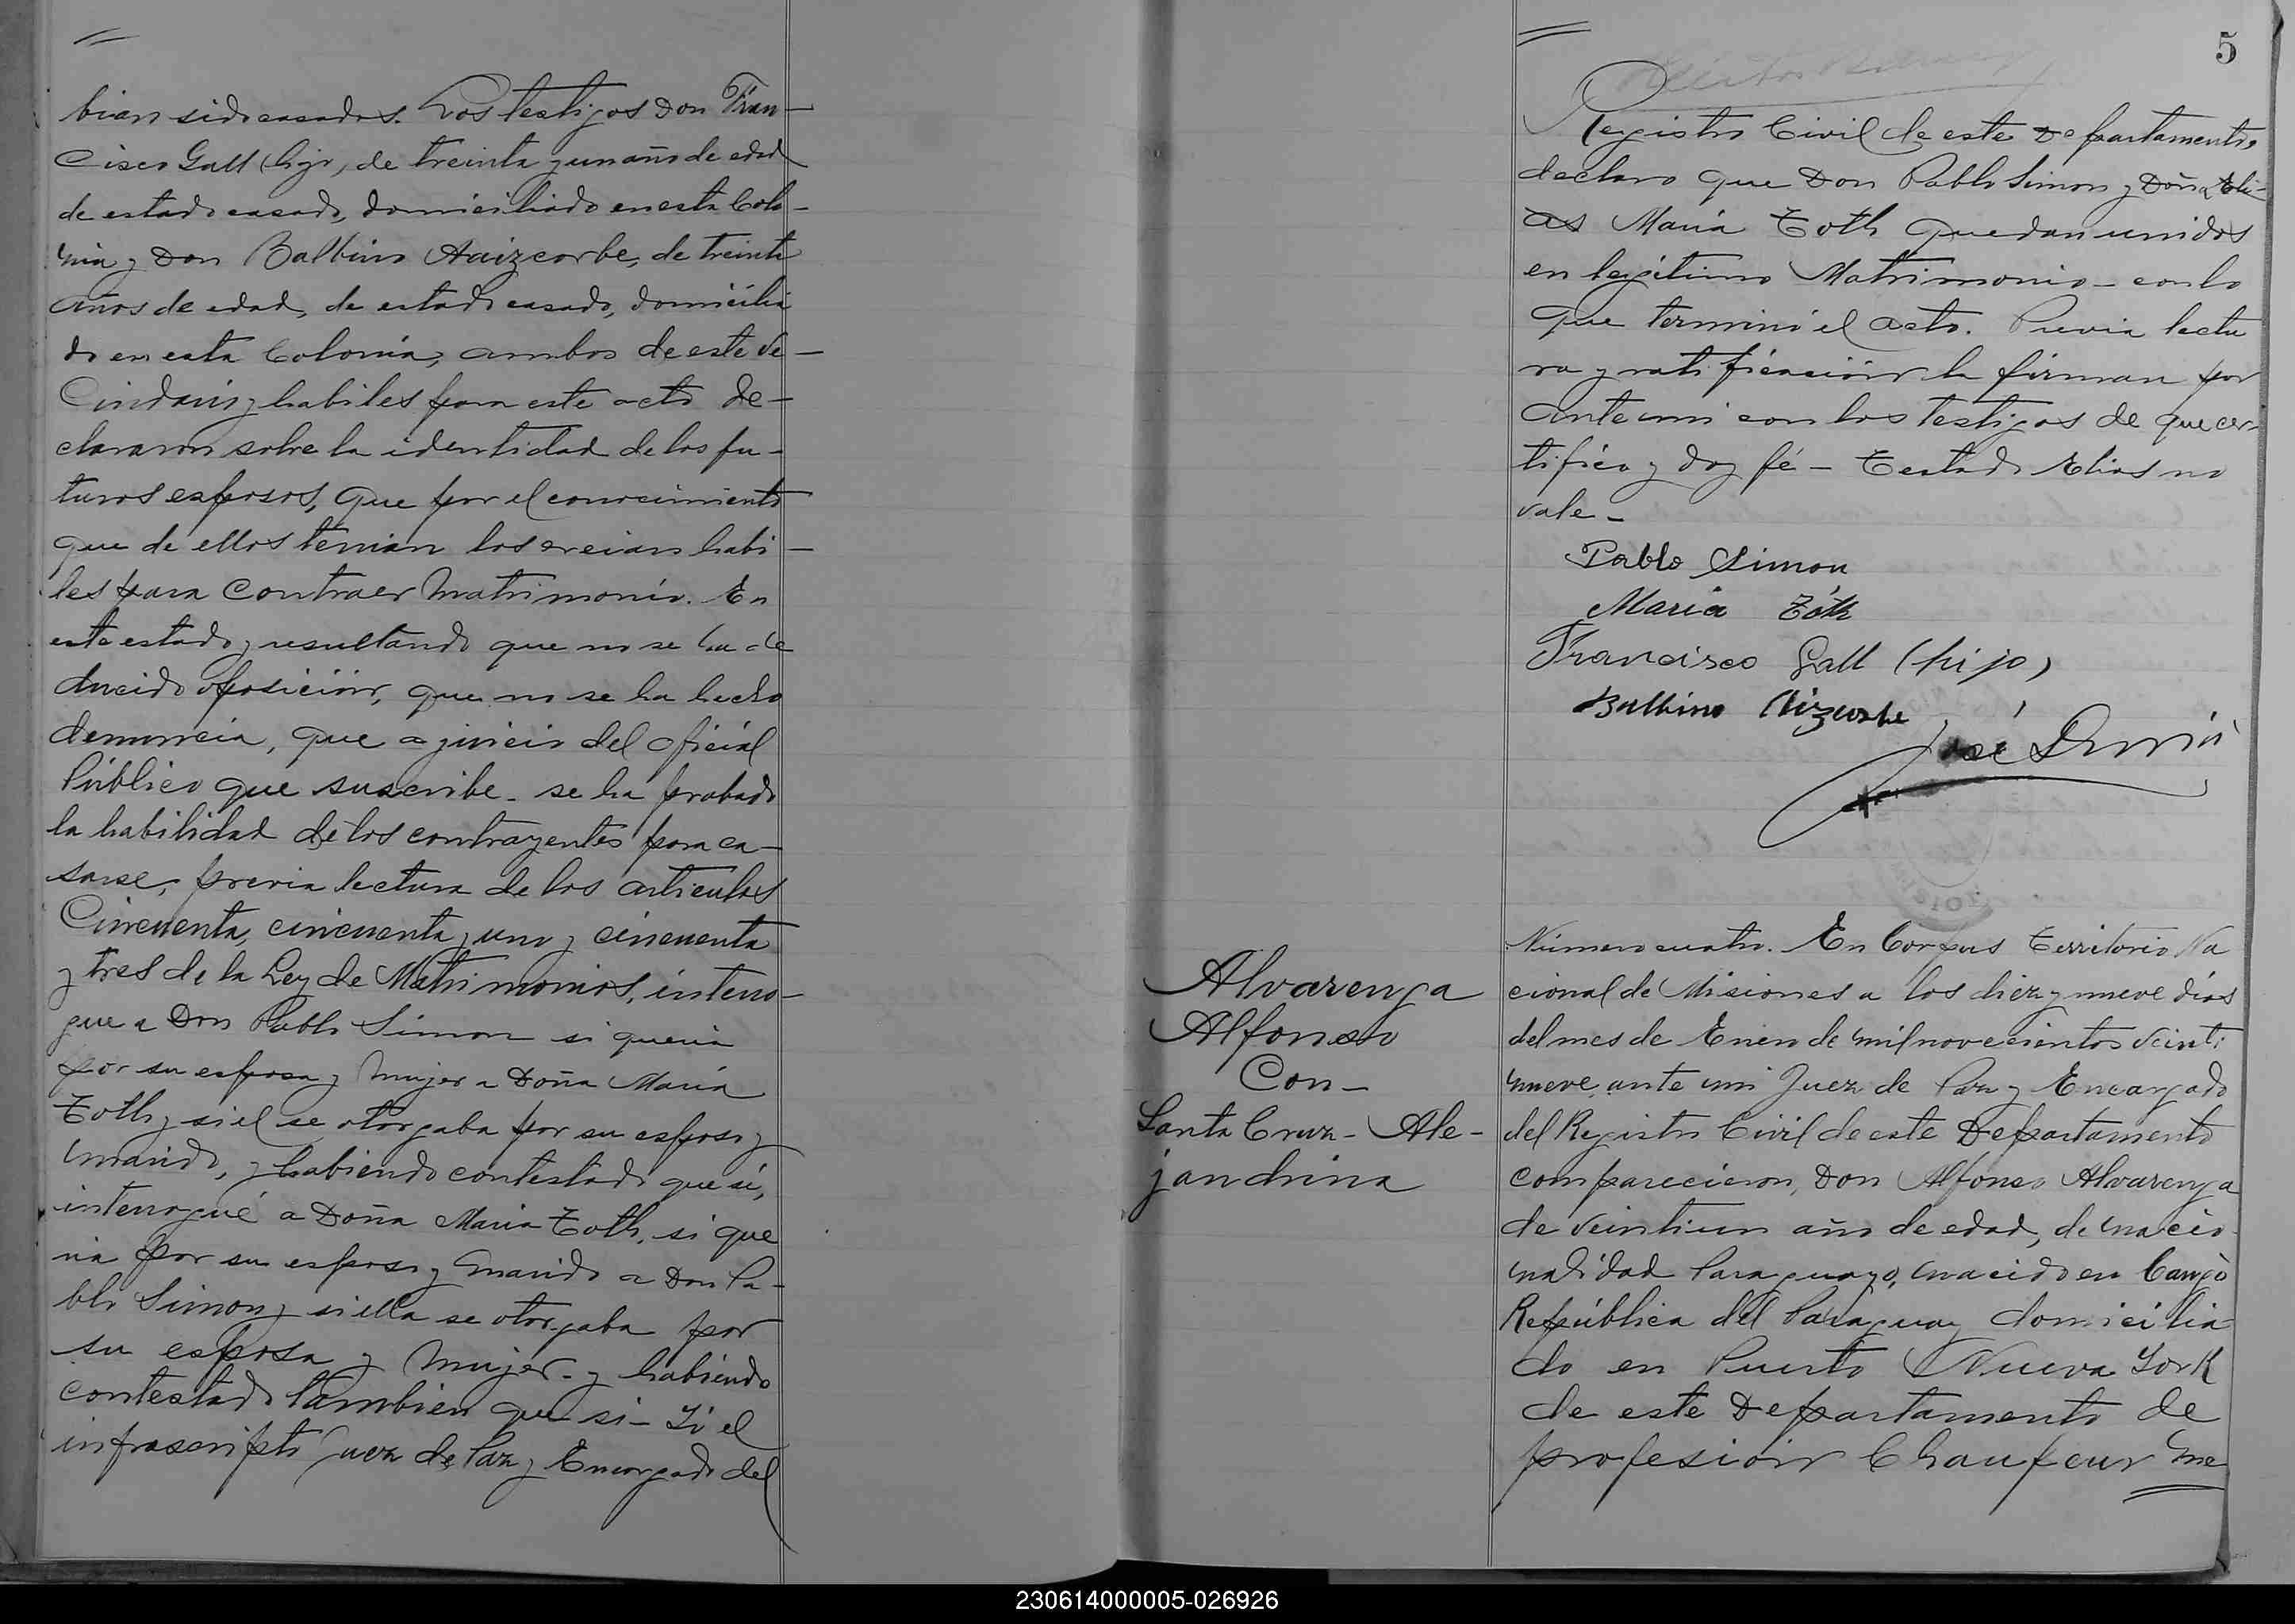 bian sido casados. Los testigos Don Fran-
cisco Gall (hijo), de treinta y un año de edad
de estado casado, domiciliado en esta Colo-
nia y Don Balbino Aizcorbe, de treinta
años de edad, de estado casado, domicilia
do en esta Colonia, ambos de este Ve-
cindario y habiles para este acto de-
clararon sobre la identidad de los fu-
turos esposos, que por el conocimiento
que de ellos tenian los creian habi-
les para contraer Matrimonio. En
este estado y resultando que no se ha de
ducido oposición, que no se ha hecho
denuncia, que a juicio del oficial
Público que suscribe - se ha probado
la habilidad de los contrayentes para ca-
sarse, previa lectura de los articulos
Cincuenta, cincuenta y uno y cincuenta
y tres de la Ley de Matrimonios, interro-
gue a Don Pablo Simon si queria
por su esposa y Mujer a Doña María
Toth y si el se otorgaba por su esposo y
marido, y habiendo contestado que si,
interrogué a Doña Maria Toth, si que
ria por su esposo y marido a Don Pa-
blo Simon y si ella se otorgaba por
su esposa y Mujer - y habiendo
contestado tambien que si - Yó el
infrascripto Juez de Paz y Encargado del
5
Registro Civil de este Departamento,
declaro que Don Pablo Simon y Doña Eli-
as María Toth quedan unidos
en legítimo Matrimonio - con lo
que terminó el acto. Previa lectu
ra y ratificación la firman por
ante mi con los testigos de que cer-
tifico y doy fé - Testado Elias no
vale -
Pablo Simon
Maria Tóth
Francisco Gall (hijo)
Balbino Aizcorbe
José
Alvarenga
Alfonso
Con -
Santa Cruz - Ale-
jandrina
Número cuatro. En Corpus Territorio Na
cional de Misiones a los diez y nueve días
del mes de Enero de mil novecientos veinti
nueve, ante mi Juez de Paz y Encargado
del Registro Civil de este Departamento
comparecieron, Don Alfonso Alvarenga
de veintiun año de edad, de nacio-
nalidad Paraguayo, nacido en
República del Paraguay domicilia-
do en Puerto Nueva York
de este Departamento de
profesión Chaufeur me
230614000005-026926